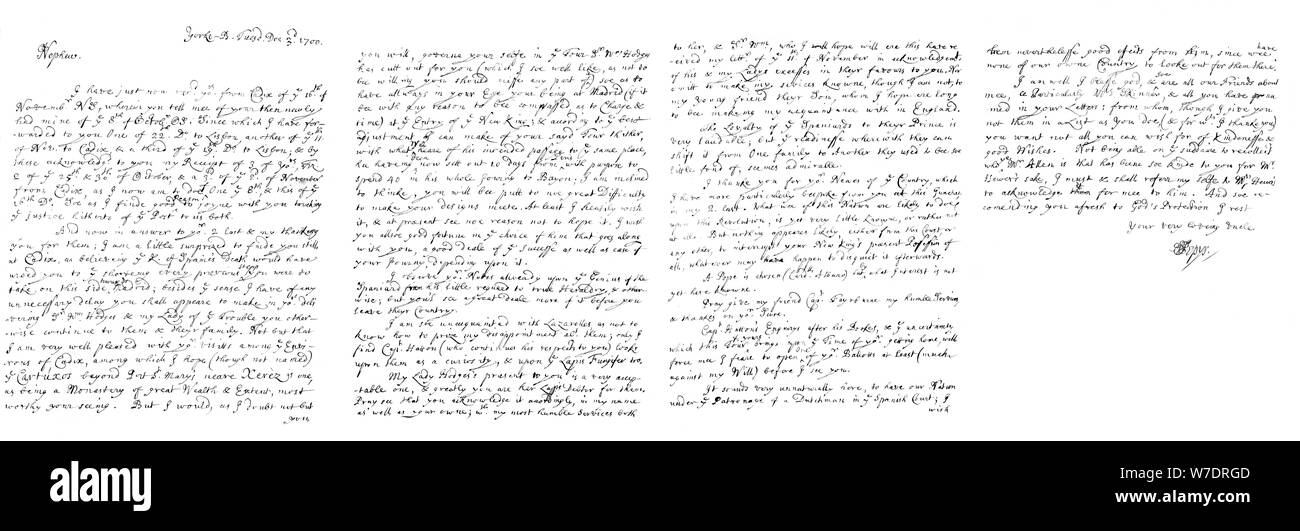 Yorke-B. Tuesd. Dec 3rd 1700.
Nephew.
I have just now recd yor from Cadix of ye 16th of
Novemb. N.S., wherein you tell mee of your then newly
had mine of ye 8th of Octobr O.S. Since which I have for-
warded to you One of 22. Do to Lisbon, another of ye 11
of Novr to Cadix, & a third of ye Do to Lisbon; & by
these acknowledg to you my Receipt of 3 of yors, viz
2 of ye 25th & 3d of October, & a 3d of ye 2d of November
from Cadix, as I now am to doe One ye 8th & this of ye
16th Do. Soe as I finde good reason to joyne with you touching
ye justice hitherto of ye Posts to us both.
And now in answer to yor 2 last & my thanking
you for them; I am a little surprized to finde you still
at Cadix, as believing ye K. of Spain's Death would have
urged you to ye shortning every previous step You were to
take on this side towards Madrid; besides ye sense I have of any
unnecessary delay you shall appeare to make, in yor deli
vering Sr Wm Hodges & my Lady of ye Trouble you other-
wise continue to them & theyr family. Not but that
I am very well pleased with yor visits among ye Envi-
rons of Cadix, among which I hope (though not named)
ye Cartuxos beyond Port St. Mary's, neare Xerez is one,
as being a Monastery of great Wealth & Extent, most
worthy your seeing. But I would, as I doubt not but
you
you will, governe your selfe in ye Tour Sr Wm Hodges
has cutt out for you (which I soe well like, as not to
be willing you should misse any part of) soe as to
have allways in your Eye your being at Madrid (if it
bee with any reason to be compassed as to Charge &
time) at ye Entry of ye New King; & according to ye best
adjustment I can make of your said Tour thither
with what Wee heare of his intended passage to ye same place,
hee having now been sett out 10 Days from Paris with purpose to
spend 40 in his whole Journy to Bayon; I am inclined
to thinke, you will bee putt to noe great Difficulty
to make your designs meete. At least I heartily wish
it, & at present see noe reason not to hope it. I wish
you alsoe good fortune in ye choice of him that goes along
with you, a good deale of ye successe as well as ease of
your Journy depending upon it.
I observe yor Notes already upon ye Genius of the
Spaniard from his little regard to true Heraldry, & other-
wise; but you'l see a great deale more of it before you
leave theyr Country.
I am soe unacquainted with Lazarolles as not to
know how to prize my disappointment abt them; only I
find Capt. Hatton (who continues his respects to you) looke
upon them as a curiosity, & upon ye Lapis Fungifer too.
My Lady Hodges's present to you is a very accep-
table one, & greatly you are her Ladysps Debtor for them.
Pray see that you acknowledg it accordingly, in my name
as well as your owne; wth my most humble Services both
to her, & Sr Wm, who I well hope will ere this have re
ceived my lettr of ye 11th of November in acknowledgemt.
of his & my Lady's excesses in theyr favours to you. Nor
omitt to make my services knowne, though I am not, to
my young friend theyr Son, whom I hope ere long
to bee making my acquaintance with in England.
The Loyalty of ye Spaniards to theyr Prince is
very laudable; but ye readinesse wherewith they can
shift it from One family to another they used to bee soe
little fond of, seemes admirable.
I thanke you for yor Newes of ye Country, which
I have more particularly bespoke from you at this juncture
in my 2 last. What use of this Nation are likely to doe
upon this Revolution, is yet very little knowne, or rather not
at all. But nothing appeares likely, either from this Court, or
any other, to interrupt your New King's present Possession of
all, whatever may happen to disquiet it afterwards.
A Pope is chosen (Card. Albano) but what Interest is not
yet here knowne.
Pray give my friend Capt. Fayrborne my humble Service
& thankes on yor score.
Capt. Hatton Enquires after his Bookes, & ye uncertainty
which this Tour brings upon ye Time of yor getting home will
force me I feare to open of yor Baliots at least (much
against my Will) before I see you.
It sounds very unnaturally here, to have our Nation
under ye Patronage of a Dutchman in ye Spanish Court; I
wish
them neverthelesse good efects from him, since wee have
none of our owne Country to looke out for them there.
I am well I blesse God, & soe are all our Friends about
mee, & Particularly Mrs Skinner & all you have nam
med in your Letters: from whom, though I give you
not them in a List as You doe (& for wch I thanke you)
you want not all you can wish for of Kindenesse &
good Wishes. Not being able on ye suddaine to recollect
who Mr. Atken is that has beene soe kinde to you for Mr
Hewer's sake, I must & shall referr my selfe to Mr Hewer
to acknowledge them for mee to him. And soe re-
comending you afresh to God's Protection I rest
Your very loving Uncle
SPepys.
alamy
Image ID: W7DRGD
www.alamy.com